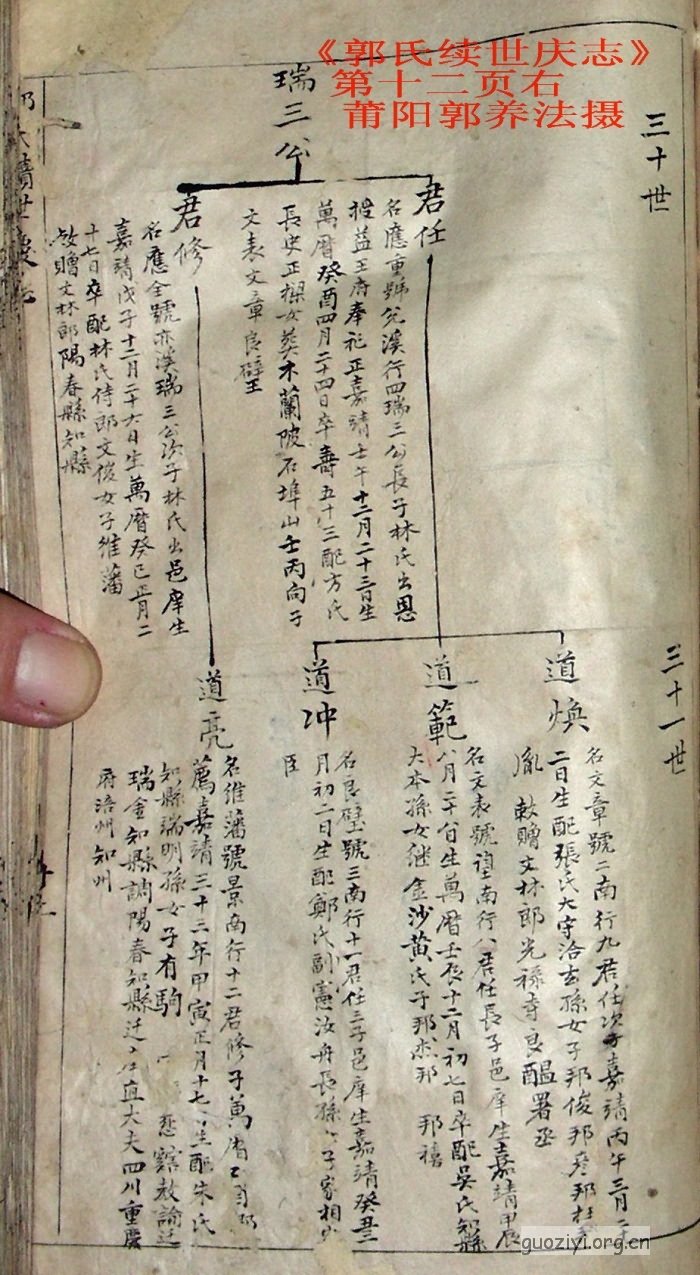 《郭氏续世庆志》
第十二页右
莆阳郭养法摄
三十世
瑞三公
君任
名應重號兊溪行四瑞三公長子林氏出恩
授益王府奉祀正嘉靖壬午十二月二十三日生
萬曆癸酉四月二十四日卒壽五十三配方氏
長史正樑女葬木蘭陂石埠山壬丙向子
文表文章良璧
君修
名應全號亦溪瑞三公次子林氏出邑庠生
嘉靖戊子十二月二十六日生萬曆癸巳正月二
十七日卒配林氏侍郎文俊女子維藩
敕贈文林郎陽春縣知縣
三十一世
道煥
名文章號二南行九君任次子嘉靖丙午三月二十
二日生配張氏大守洽玄孫女子邦俊邦彦邦柱
胤 敕贈文林郎光祿寺良醖署丞
道範
名文表號望南行八君任長子邑庠生嘉靖甲辰
八月二十八日生萬曆壬辰十二月初七日卒配吳氏知縣
大本孫女継金沙黄氏子邦 邦 邦禧
道冲
名良璧號三南行十一君任三子邑庠生嘉靖癸丑三
月初二日生配鄭氏副憲汝舟長孫女子家相
臣
道亮
名維藩號景南行十二君修子萬曆
薦嘉靖三十三年甲寅正月十七日生配朱氏
知縣瑞明孫女子有駒 教諭迁
瑞金知縣調陽春知縣迁 直大夫四川重慶
府涪州知州
guoziyi.org.cn